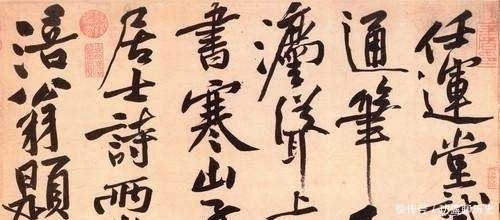 任運堂
通筆
灋聳上
書寒山子
居士詩兩
涪翁題
快传号